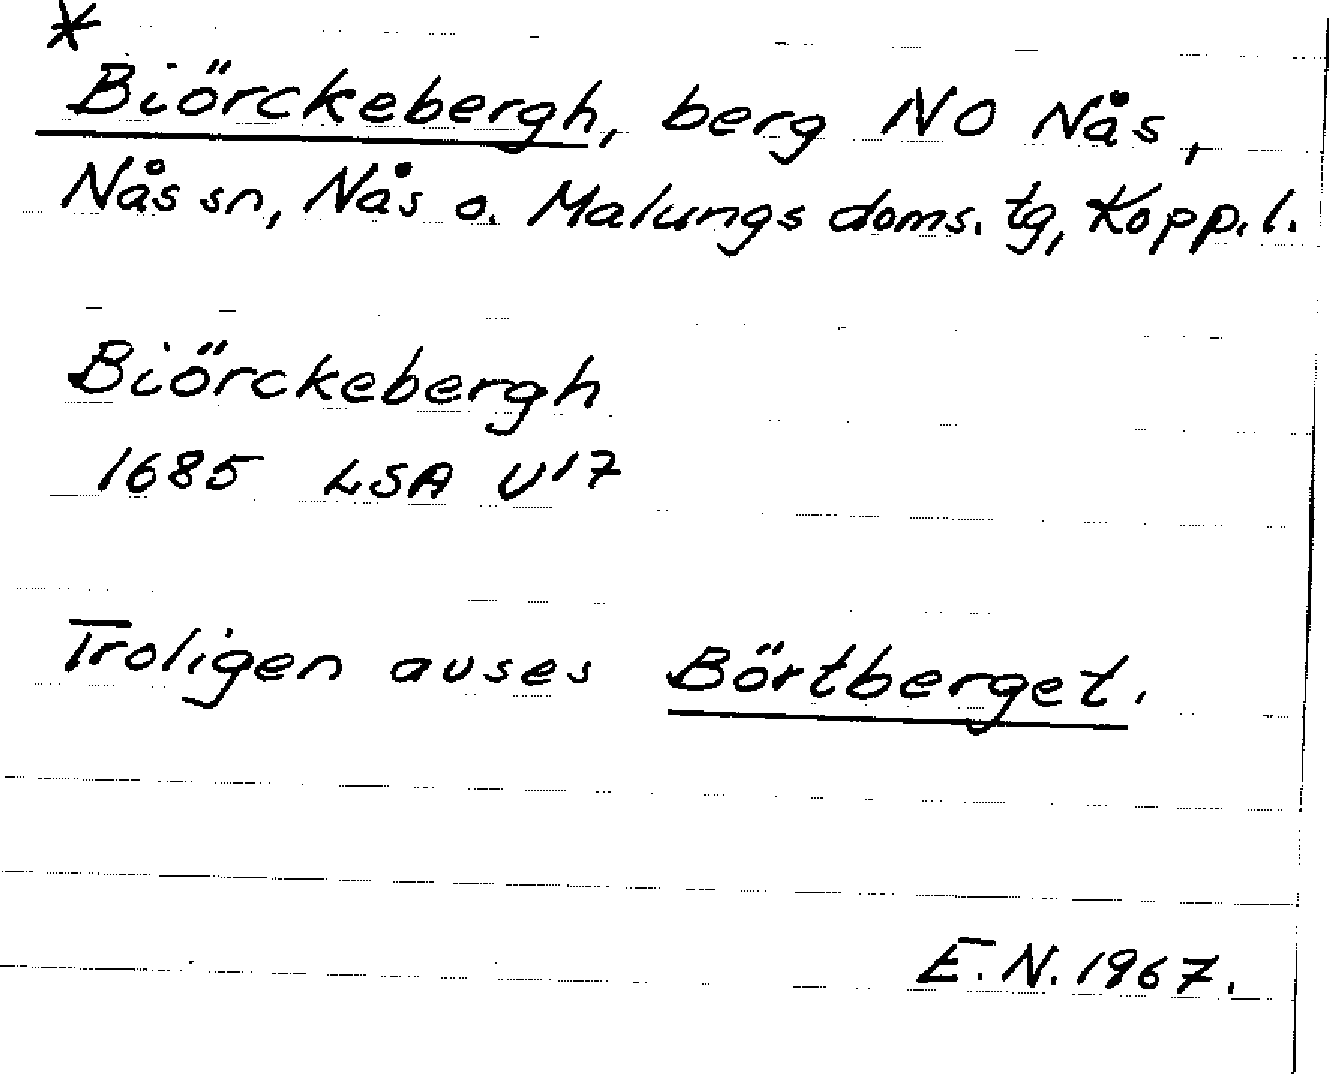 *
Biörckebergh, berg NO Nås,
Nås sn, Nås o. Malungs doms. tg, Kopp. l.
Biörckebergh
1685 LSA U17
Troligen avses Börtberget.
E.N. 1967.